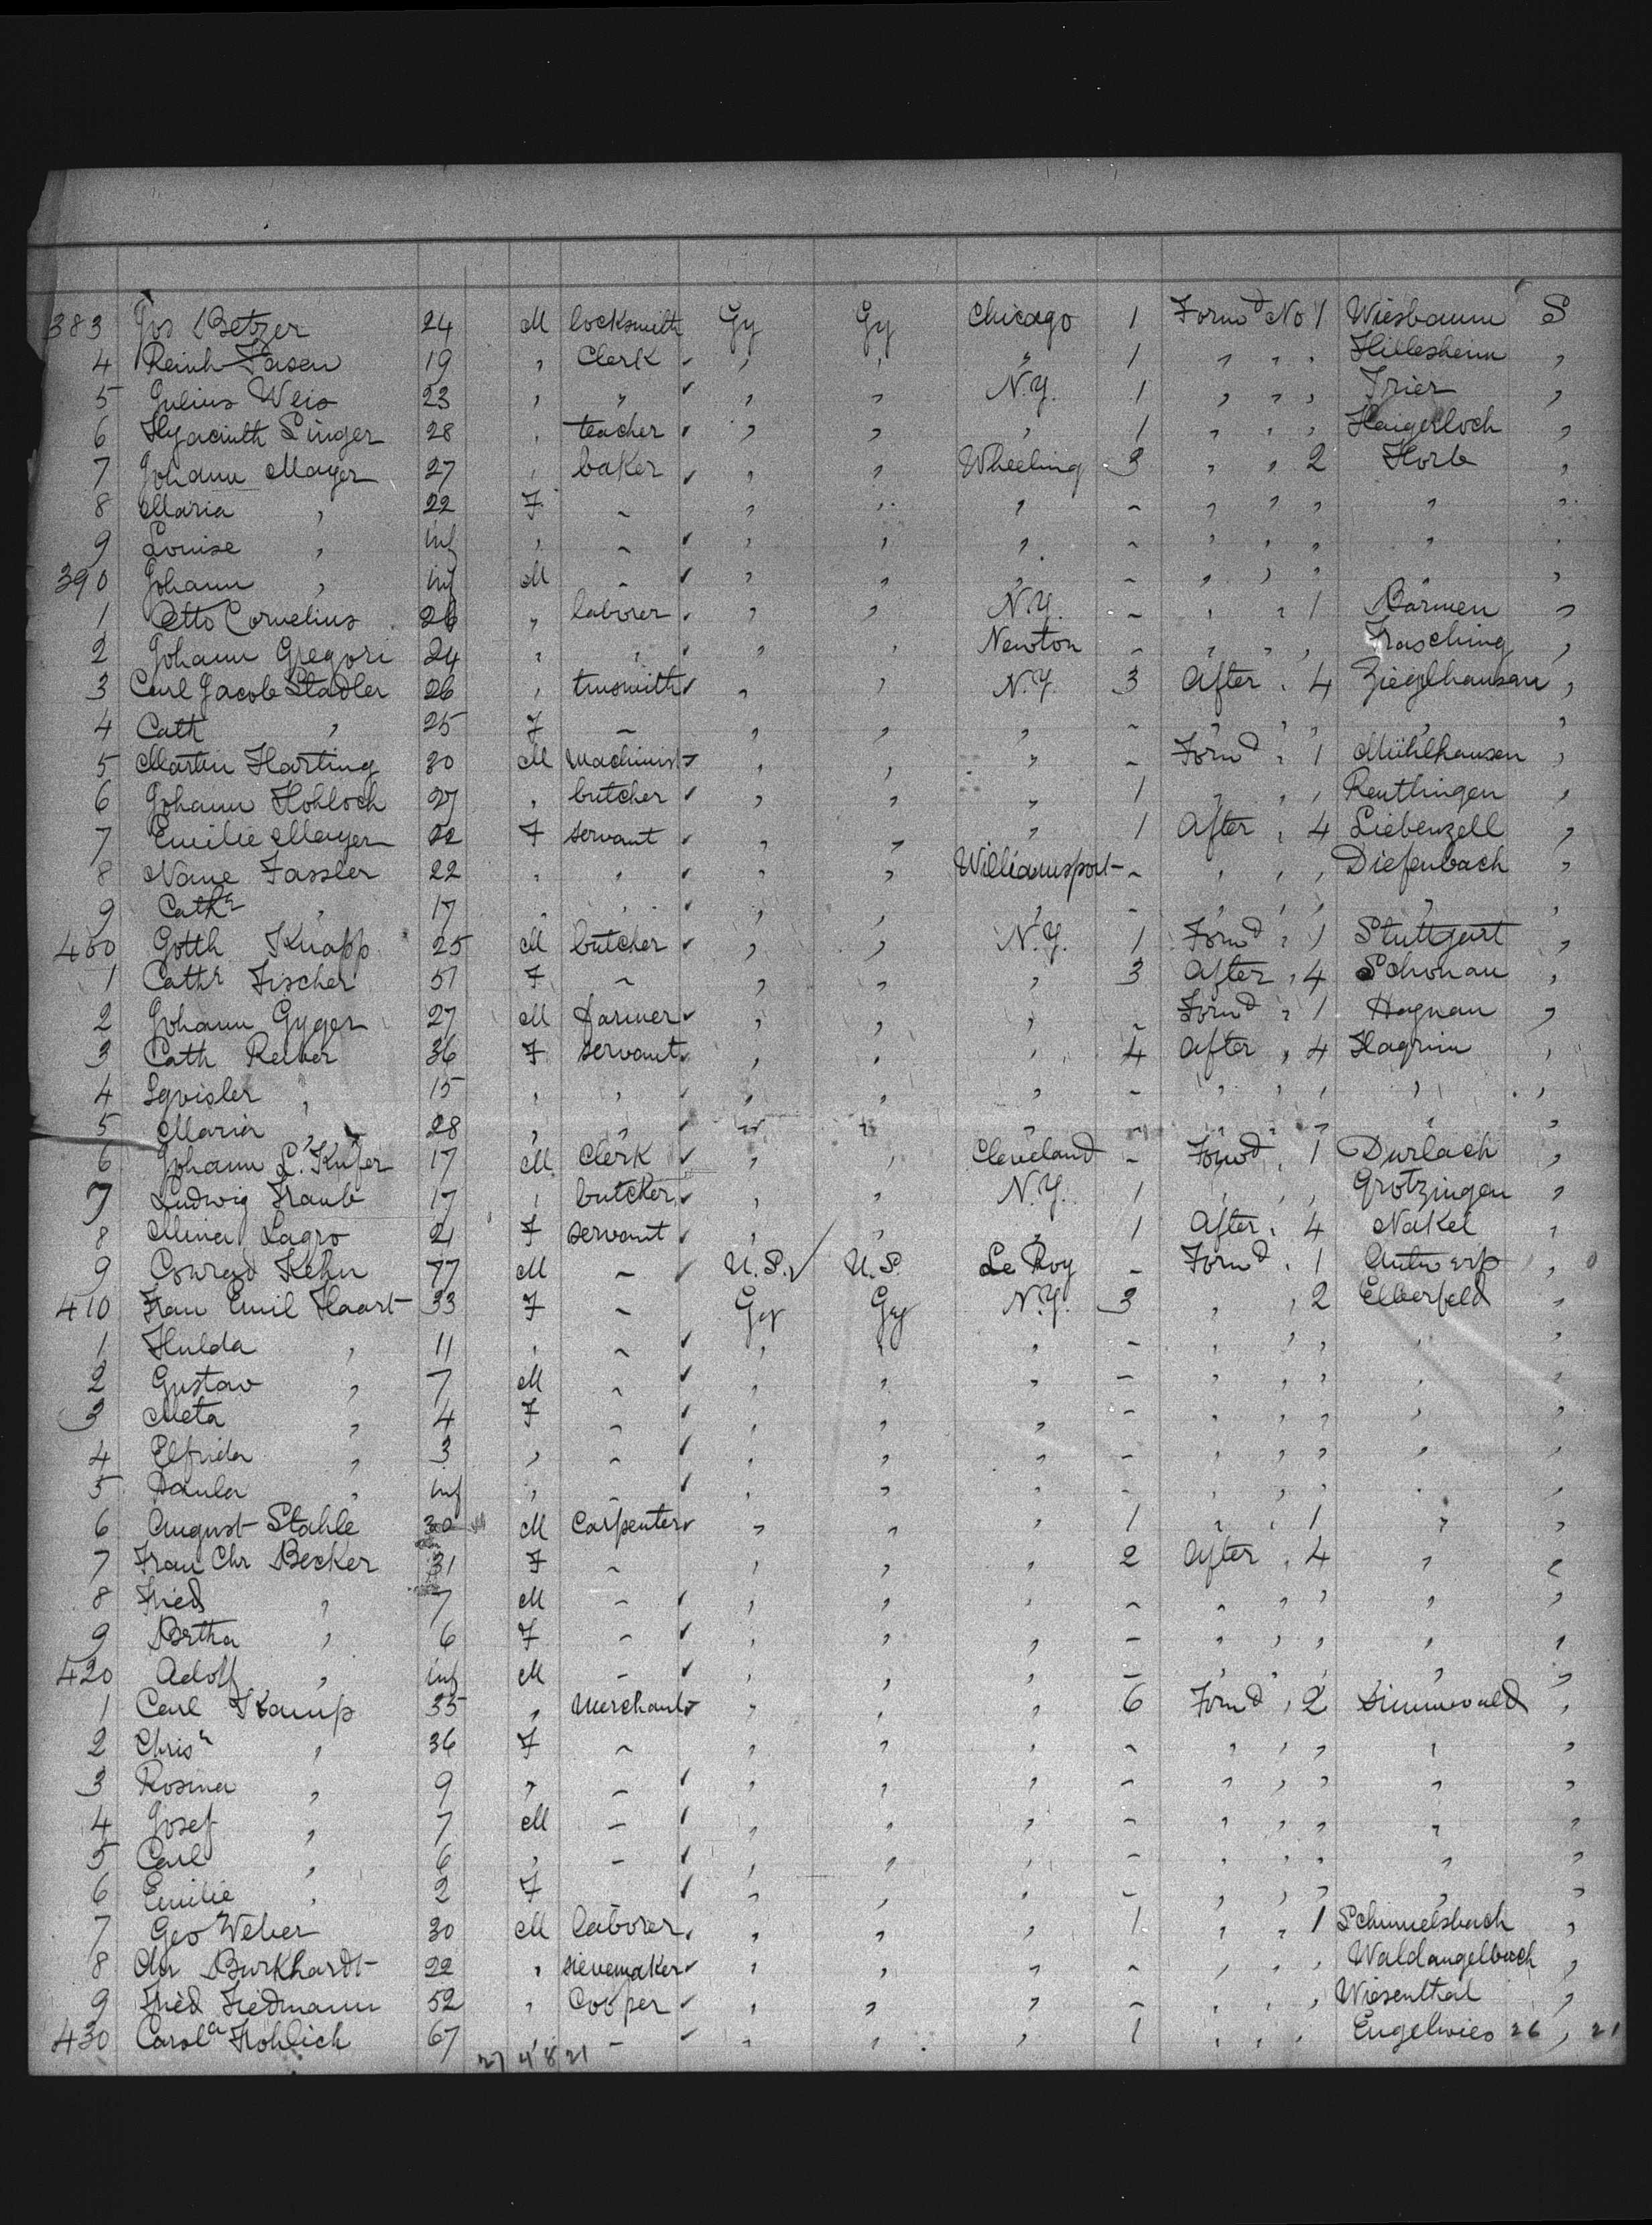 383 Jos Betzer 24 M locksmith Gy Gy Chicago 1 Forwd No 1 Wiesbaum S
4 Reinh Fasen 19 " Clerk " " " 1 " " " Hillesheim "
5 Julius Weis 23 " " " " N.Y. 1 " " " Trier "
6 Hyacinth Singer 28 " teacher " " " 1 " " " Haigerloch "
7 Johann Mayer 27 " baker " " Wheeling 3 " " 2 Horb "
8 Maria " 22 F - " " " - " " " " "
9 Louise " inf " - " " " - " " " " "
390 Johann " inf M - " " " - " " " " "
1 Otto Cornelius 26 " laborer " " N.Y. - " " 1 Barmen "
2 Johann Gregori 24 " " " " Newton - " " " Trasching "
3 Carl Jacob Stadler 26 " tinsmith " " N.Y. 3 After " 4 Ziegelhausen "
4 Cath " 25 F - " " " - " " " " "
5 Martin Harting 30 M Machinist " " " - Forwd " 1 Mühlhausen "
6 Johann Hohloch 27 " butcher " " " 1 " " " Reutlingen "
7 Emilie Mayer 22 F servant " " " 1 After " 4 Liebenzell "
8 Nane Fassler 22 " " " " Williamsport - " " " Diefenbach "
9 Cathr " 17 " " " " " - " " " " "
400 Gotth Knapp 25 M butcher " " N.Y. 1 Forwd " 1 Stuttgart "
1 Cathr Fischer 51 F - " " " 3 After " 4 Schonau "
2 Johann Gyger 27 M farmer " " " - Forwd " 1 Hagnau "
3 Cath Reiber 36 F servant " " " 4 After " 4 "
4 " 15 " " " " " - " " " " "
5 Maria " 28 " " " " " - " " " " "
6 Johann L. Kufer 17 M Clerk " " Cleveland - Forwd " 1 Durlach "
7 Ludwig Traub 17 " butcher " " N.Y. 1 " " " Grotzingen "
8 Mina Lagro 21 F servant " " " 1 After " 4 Nakel "
9 Conrad Kehn 77 M - U.S. U.S. Le Roy - Forwd " 1 Antwerp " 0
410 Frau Emil Haart 33 F - Gy Gy N.Y. 3 " " 2 Elberfeld "
1 Hulda " 11 " - " " " - " " " " "
2 Gustav " 7 M - " " " - " " " " "
3 Meta " 4 F - " " " - " " " " "
4 Elfrida " 3 " - " " " - " " " " "
5 Paula " inf " - " " " - " " " " "
6 August Stahle 30 M Carpenter " " " 1 " " 1 " "
7 Frau Chr Becker 31 F - " " " 2 After " 4 " "
8 Fried " 7 M - " " " - " " " " "
9 Bertha " 6 F - " " " - " " " " "
420 Adolf " inf M - " " " - " " " " "
1 Carl Kamp 35 " Merchant " " " 6 Forwd " 2 "
2 Chrisn " 36 F - " " " - " " " " "
3 Rosina " 9 " - " " " - " " " " "
4 Josef " 7 M - " " " - " " " " "
5 Carl " 6 " - " " " - " " " " "
6 Emilie " 2 F " " " - " " " " "
7 Geo Weber 30 M laborer " " " 1 " " 1 Schimelsbach "
8 Chr Burkhardt 22 " sievemaker " " " - " " " Waldangelbach "
9 Fried Fiedmann 52 " Cooper " " " - " " " Wiesenthal "
430 Carola Frohlich 67 " - " " " 1 " " " Engelwies 26 " 21
27 4 8 21